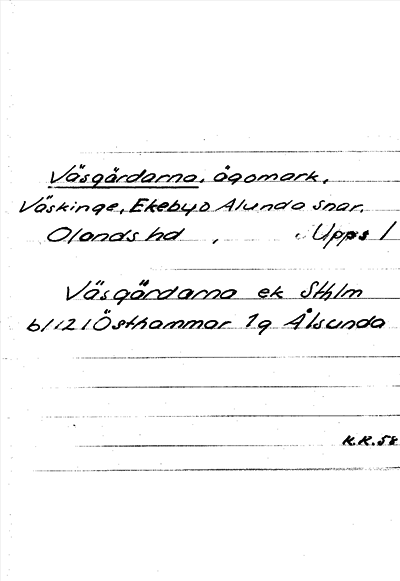 Väsgårdarna, ägomark,
Väskinge, Ekeby o Alunda snar,
Olands hd , Upps l
Väsgårdarna ek Sthlm
b/121 Östhammar 1g Ålsunda
K.R.58